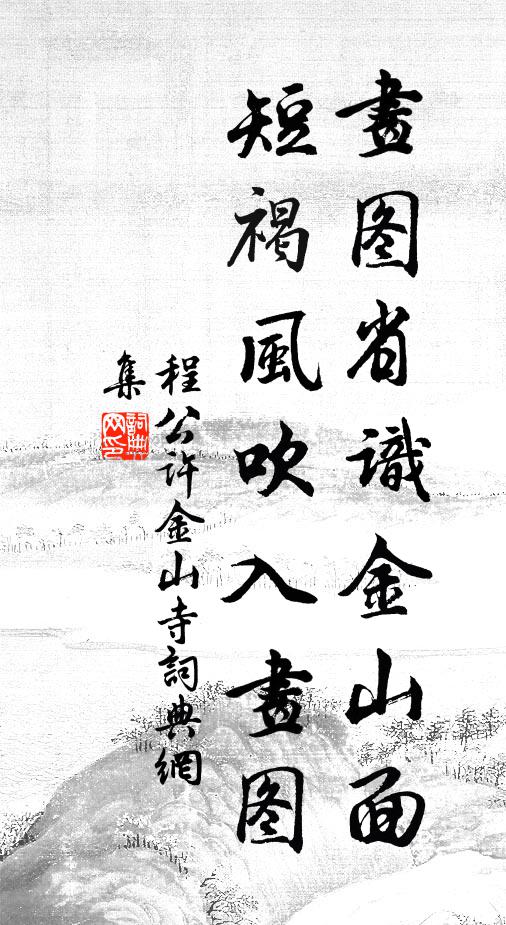 畫图省識金山面
短褐風吹入畫图
程公許金山寺詞典網
集
詞典网印